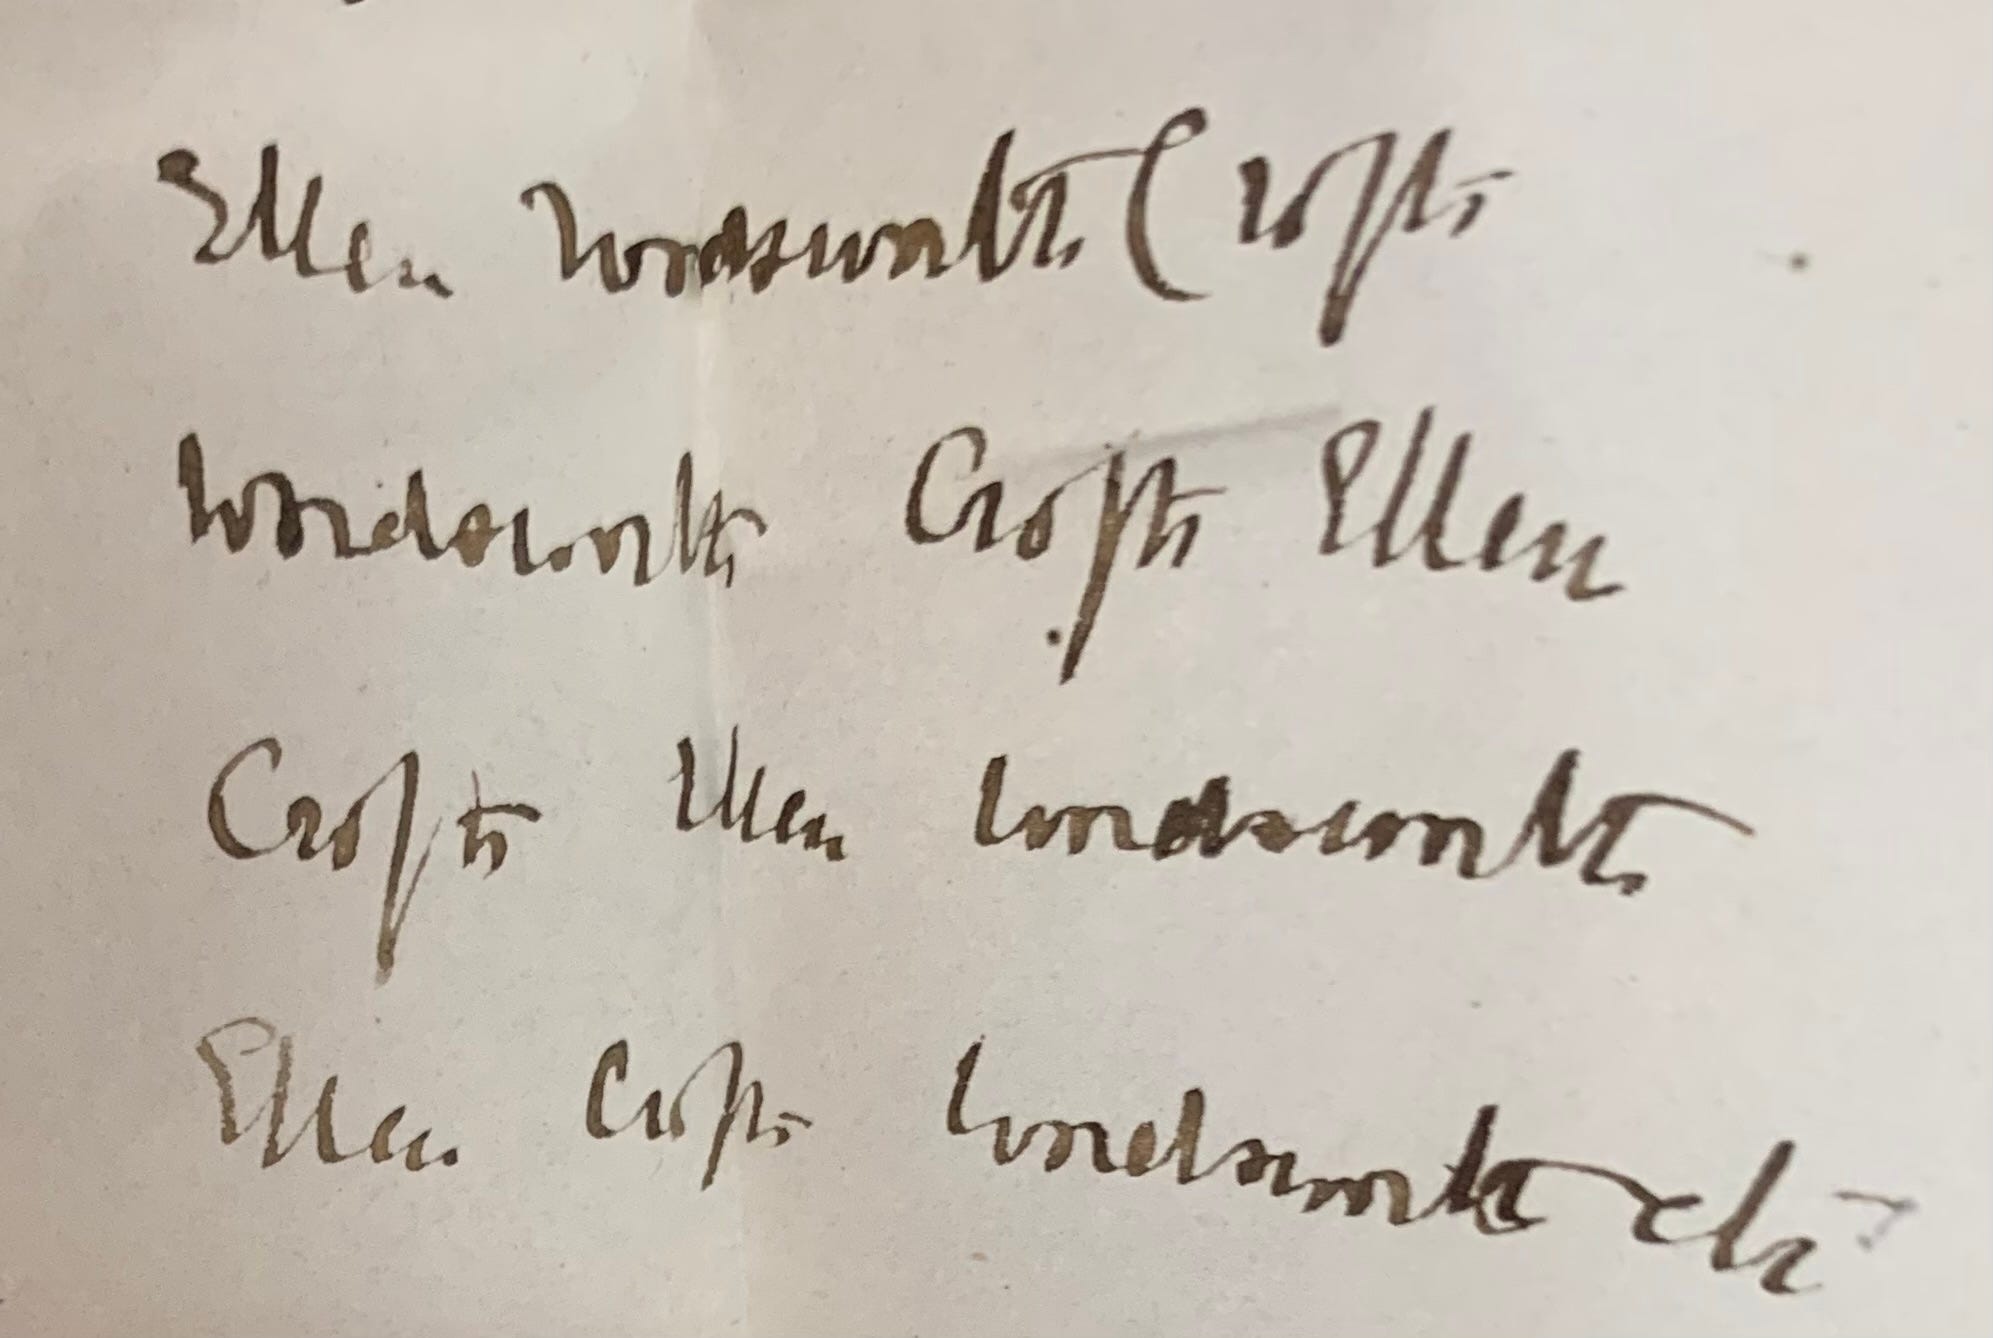 Ellen Wordsworth Crofts
Wordsworth Crofts Ellen
Crofts Ellen Wordsworth
Ellen Crofts Wordsworth etc